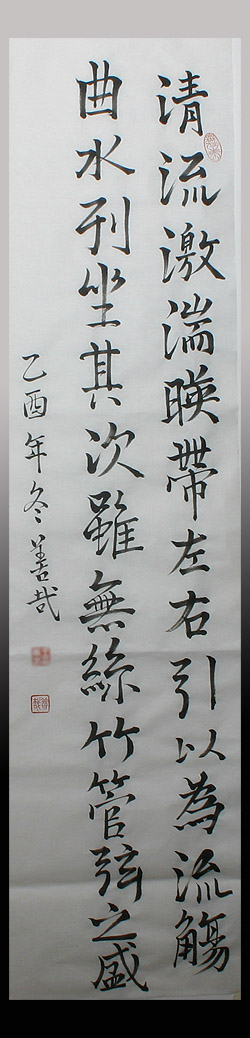 清流激湍暎帶左右引以為流觴
曲水列坐其次雖無絲竹管弦之盛
乙酉年冬善哉